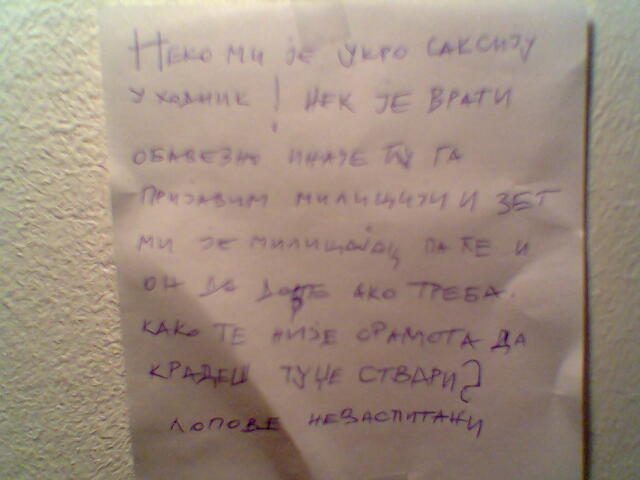 Неко ми је укро саксију
у ходник! Нек је врати
обавезно иначе ћу га
пријавим милицији и зет
ми је милицајац па ће и
он да дође ако треба.
како те није срамота да
крадеш туџе ствари?
лопове неваспитани